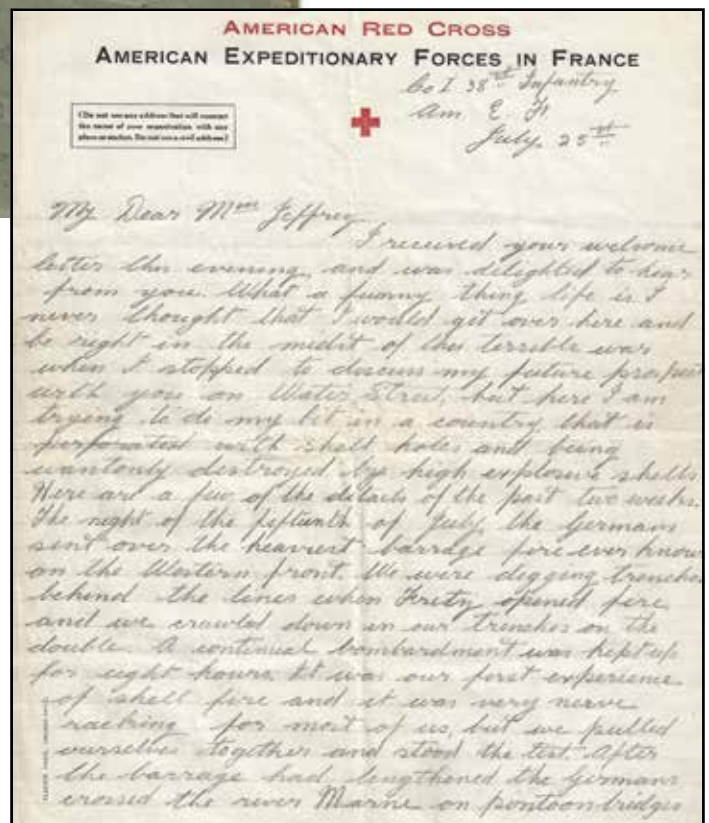 AMERICAN RED CROSS
AMERICAN EXPEDITIONARY FORCES IN FRANCE
Co I 38th Infantry
Am. E. F.
July 25th
(Do not use any address that will connect
the name of your organization with any
place or station. Do not use a civil address)
My Dear Mrs Jeffrey
I received your welcome
letter this evening, and was delighted to hear
from you. What a funny thing life is I
never thought that I would get over here and
be right in the midst of this terrible war
when I stopped to discuss my future prospects
with you on Water Street, but here I am
trying to do my bit in a country that is
perforated with shell holes and being
wantonly destroyed by high explosive shells.
Here are a few of the details of the past two weeks.
The night of the fifteenth of July, the Germans
sent over the heaviest barrage fire ever know
on the Western front. We were digging trenches
behind the lines when Fritz opened fire
and we crawled down in our trenches on the
double. A continual bombardment was kept up
for eight hours. It was our first experience
of shell fire and it was very nerve
racking for most of us, but we pulled
ourselves together and stood the test. After
the barrage had lengthened the Germans
crossed the river Marne on pontoon bridges